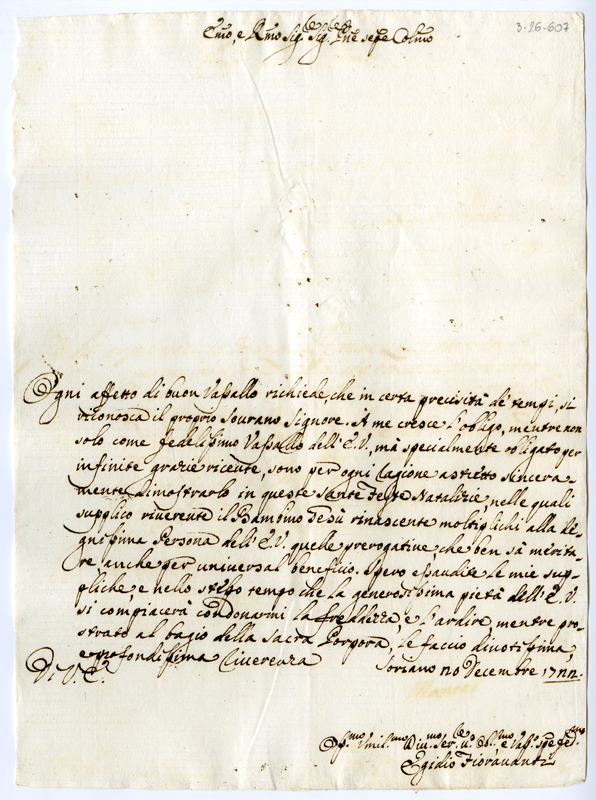 3-26-607
Emo, e Rmo Sig.re Sig.re Pne sepe Colmo
Ogni affetto di buon Vassallo richiede, che in certa precisità de' tempi, si
riconosca il proprio sourano Signore. A me cresce l'obligo, mentre non
solo come fedelissimo Vassallo dell'E.V., mà specialmente obligato per
infinite grazie riceute, sono per ogni ragione astretto sincera-
mente dimostrarlo in queste Sante Feste Natalizie, nelle quali
supplico riuerente il Bambino Gesù rinascente moltiplichi alla de-
gnissima Persona dell'E.V. quelle prerogatiue, che ben sà merita-
re, anche per uniuersal beneficio. Spero essaudite le mie sup-
pliche, e nello stesso tempo che la generosissima pietà dell'E.V.
si compiacerà condonarmi la freddezza, e l'ardire, mentre pro-
strato al bagio della Sacra Porpora, le faccio diuotissima,
e profondissima riuerenza
Di V.E. Soriano 20 Decembre 1722.
Vmil.mo Diu.mo Ser.re
Egidio Fiorauanti